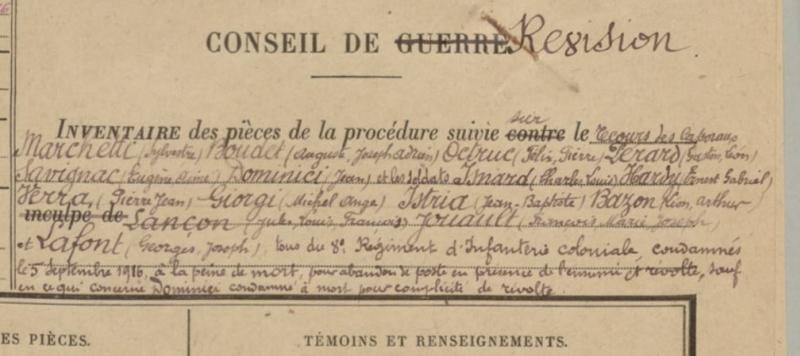 CONSEIL DE GUERRE Revision
sur
INVENTAIRE des pièces de la procédure suivie contre le Recours des Caporaux
Marchetti (Sylvestre) Boudet (Auguste, Joseph Adrien) Debruc (Félix, Pierre) Lérard (Gaston, Léon)
Savignac (Eugène Aimé) Dominici (Jean) et les soldats Isnard (Charles, Louis) Hardy (Ernest Gabriel)
Verra, (Pierre Jean) Giorgi (Michel Ange) Istria (Jean-Baptiste) Bazon (Léon, Arthur)
inculpé de Lançon (Jules, Louis, François) Jouault (François Marie Joseph)
et Lafont (Georges, Joseph), tous du 8e Régiment d'Infanterie coloniale, condamnés
le 5 Septembre 1916, à la peine de mort, pour abandon de poste en présence de l'ennemi et révolte, sauf
en ce qui concerne Dominici condamné à mort pour complicité de révolte.
ES PIÈCES.
TÉMOINS ET RENSEIGNEMENTS.